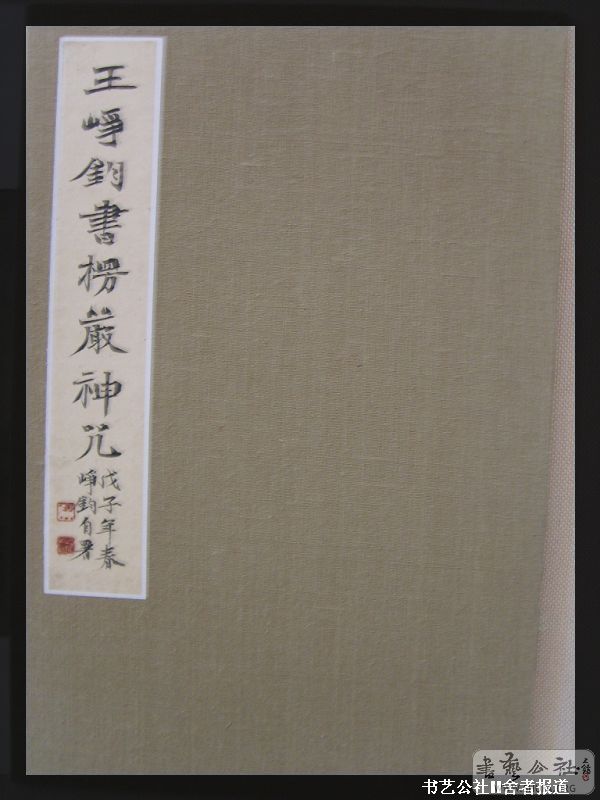 王崢鈞書楞嚴神咒
戊子年春
崢鈞自署
書藝公社
书艺公社II舍者报道